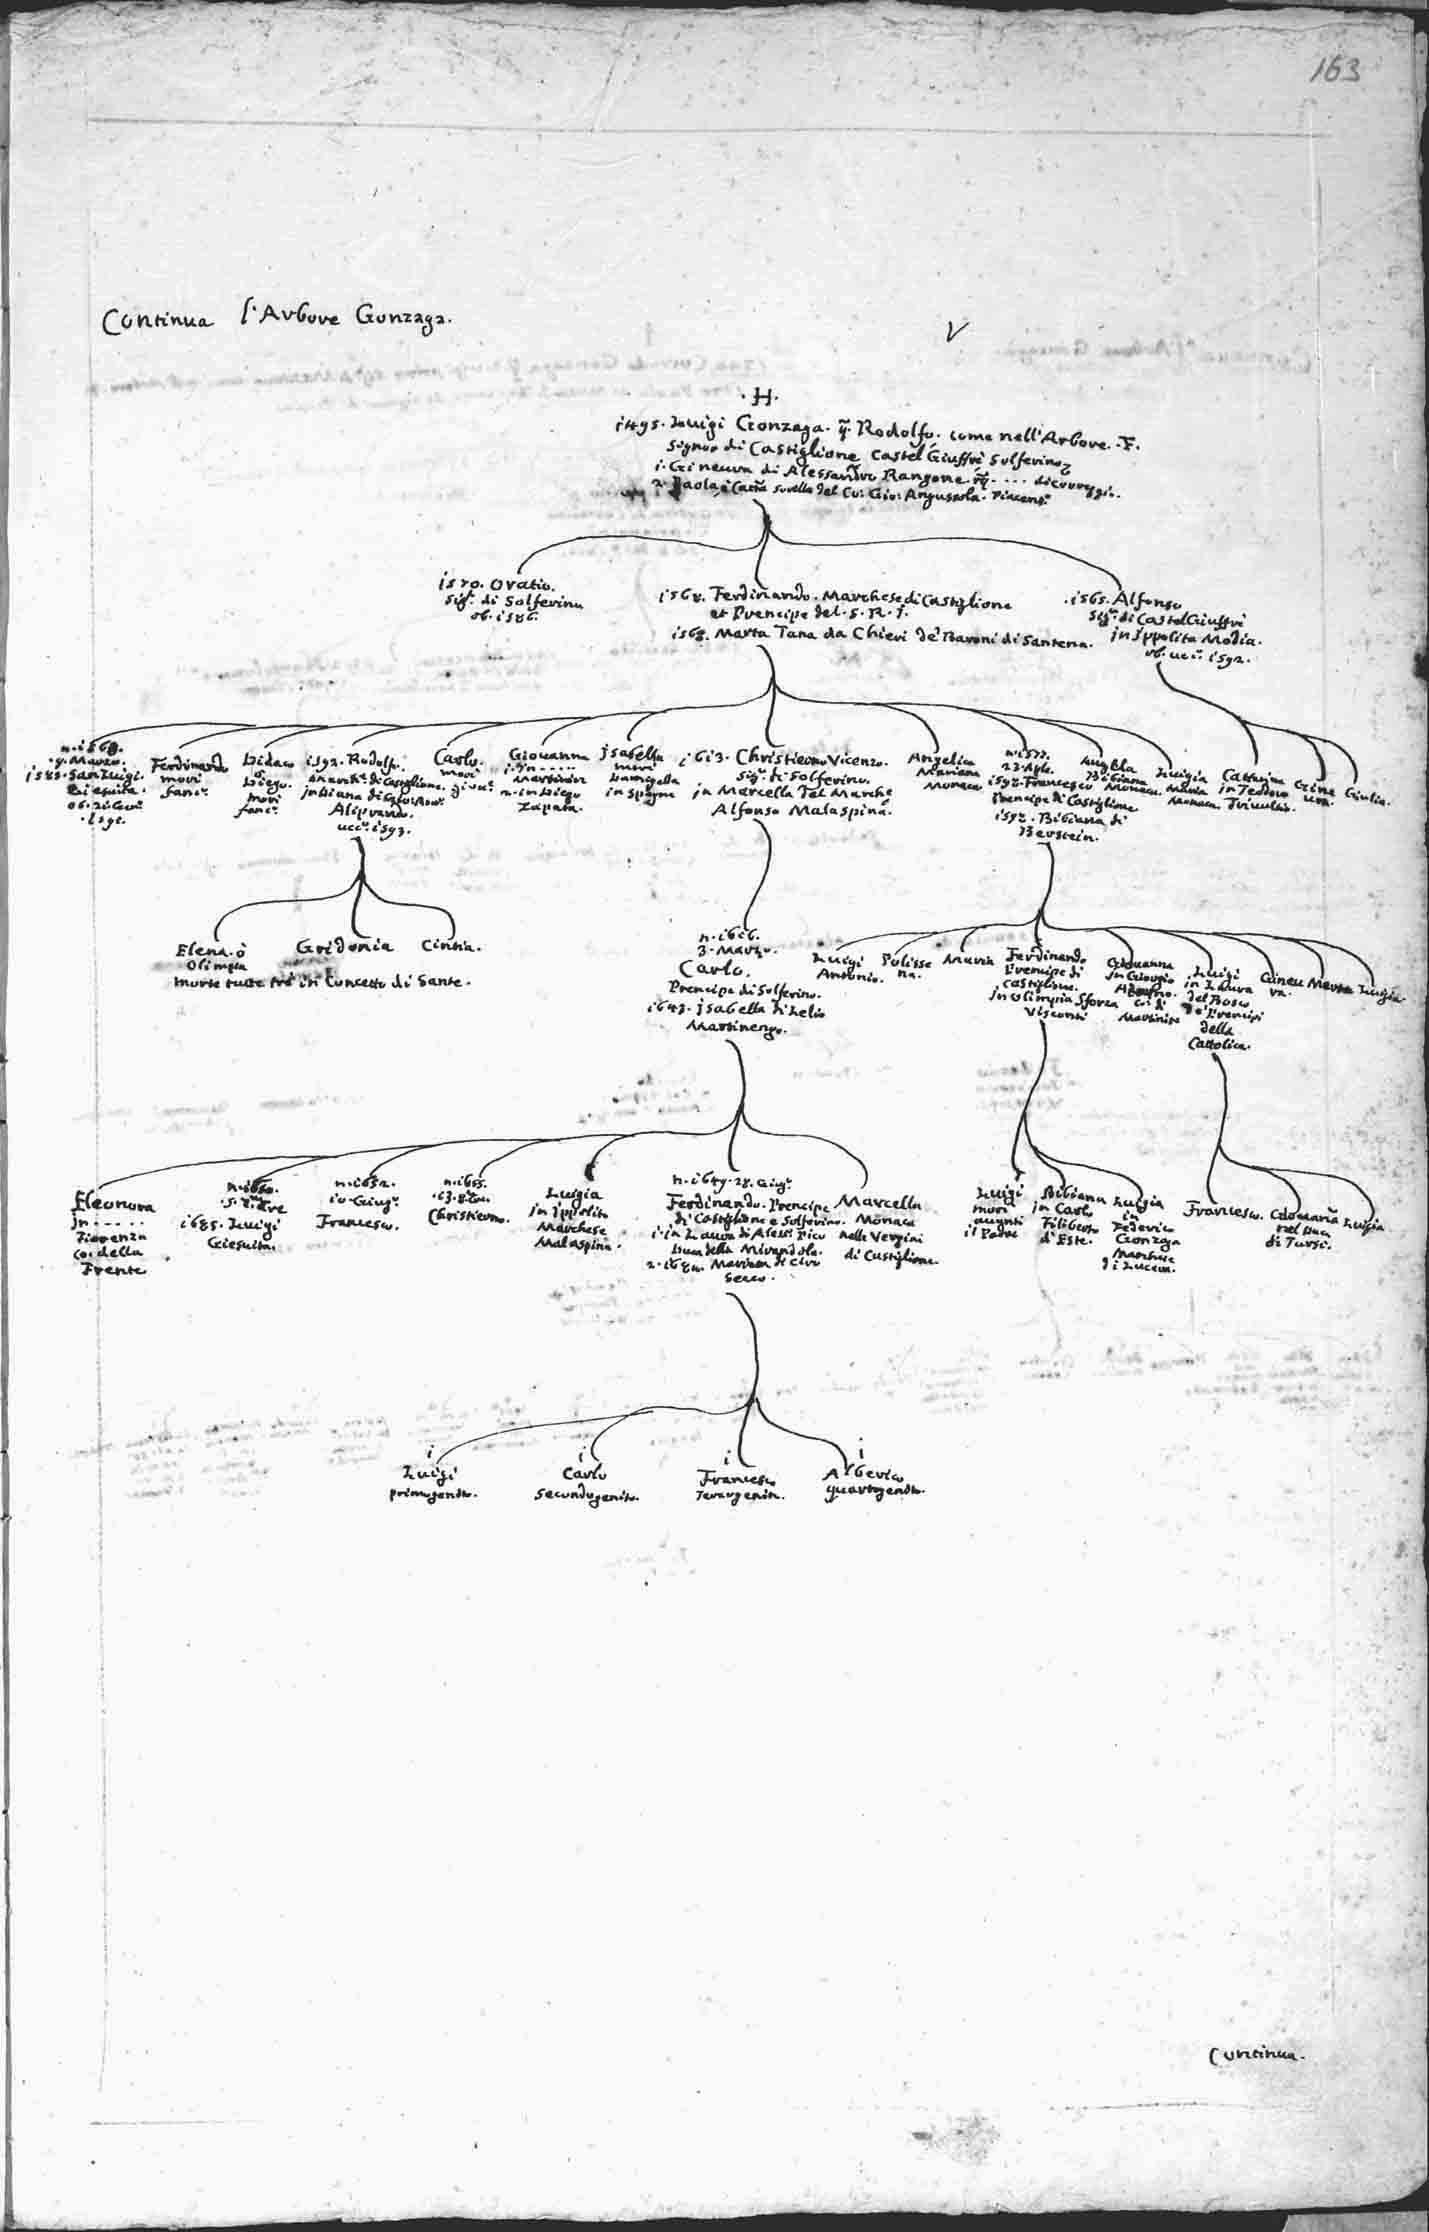 163
Continua l'Arbore Gonzaga.
V
.H.
1495. Luigi Gonzaga. q. Rodolfo. come nell'Arbore. F.
Signor di Castiglione Castel Giuffrè Solferino
1. Ginevra di Alessandro Rangone
2. Paola, sorella del Co: Gio: Angussola. Piacent.
1570. Oratio.
Sig.r di Solferino
ob. 1586.
1568. Ferdinando. Marchese di Castiglione
et Prencipe del. S. R. I.
1568. Marta Tana da Chieri de' Baroni di Santena.
.1565. Alfonso
Sig.r di Castel Giuffrè
in Ippolita Madia.
ob. ucc.o 1592.
n. 1568.
.9. Marzo.
1585. San Luigi.
Giesuita.
.1591.
Ferdinando
morì
fanc.o
Didaco
ò
Diego.
morì
fanc.o
1592. Rodolfo.
March.e di Castiglione.
Aliprando.
ucc.o 1593.
Carlo.
morì
Giovanna
1. in .....
Martinin
2. in Diego
Zapata.
Isabella
morì
Damigella
in Spagna
1613. Christierno Vicenzo.
Sig.r di Solferino.
in Marcella del March.e
Alfonso Malaspina.
Angelica
Mariana
Monaca
n. 1577.
23. Ap.le.
1592. Francesco
Prencipe di Castiglione
1597. Bibiana di
Berstein.
Bibiana
Monaca.
Luigia
Maria
Monaca.
Catterina
in Teodoro
Trivultio.
Gine
vra.
Giulia.
Elena. ò
Olimpia
Gridonia
Cintia.
morte tutte trè in Concetto di Sante.
n. 1616.
3. Marzo.
Carlo.
Prencipe di Solferino.
1643. Isabella di Lelio
Martinengo.
Luigi
Antonio.
Polisse
na.
Maria
Ferdinando
Prencipe di
Castiglione.
in Olimpia Sforza
Visconti
Giovanna
in Giorgio
Co: di
Martinitz
Luigi
in Laura
del Bosco
de' Prencipi
della
Cattolica.
Ginev
ra.
Marta
Luigia
Eleonora
in .....
Fiorenza
Co: della
Frente
n. 1650.
1685. Luigi
Giesuita.
n. 1652.
10. Giug.o
Francesco.
n. 1655.
Christierno.
Luigia
in Ippolito
Marchese
Malaspina.
n. 1649. 28. Giug.o
Ferdinando. Prencipe
di Castiglione e Solferino.
1. in Laura di Aless.o Pico
Duca della Mirandola.
Secco.
Marcella
Monaca
nelle Vergini
di Castiglione.
Luigi
morì
avanti
il Padre
Bibiana
in Carlo
Filiberto
d'Este.
Luigia
in
Federico
Gonzaga
Marchese
di Luzara.
Francesco.
nel Duca
di Tursi.
Luigia
i
Luigi
primogenito.
i
Carlo
secondogenito.
i
Francesco
Terzogenito.
i
Alberico
quartogenito.
Continua.